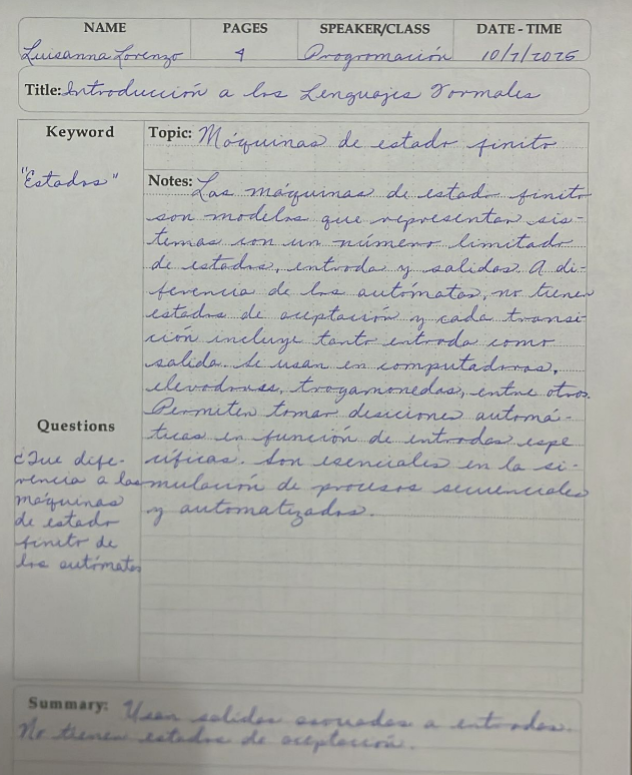 NAME PAGES SPEAKER/CLASS DATE - TIME
Luisanna Lorenzo 4 Programación 10/7/2025
Title: Introducción a los Lenguajes Formales
Keyword Topic: Máquinas de estado finito
"Estados" Notes: Las máquinas de estado finito
son modelos que representan sis-
temas con un número limitado
de estados, entrada y salidas. A di-
ferencia de los autómatas, no tienen
estados de aceptación y cada transi
ción incluye tanto entrada como
salida. Se usan en computadoras,
elevadores, tragamonedas, entre otros.
Permiten tomar desiciones automá-
ticas en función de entradas espe
cíficas. Son esenciales en la si-
mulación de procesos secuenciales
y automatizados.
Questions
¿Que dife-
rencia a las
máquinas
de estado
finito de
los autómatas
Summary: Usan salidas asociadas a entradas.
No tienen estados de aceptación.